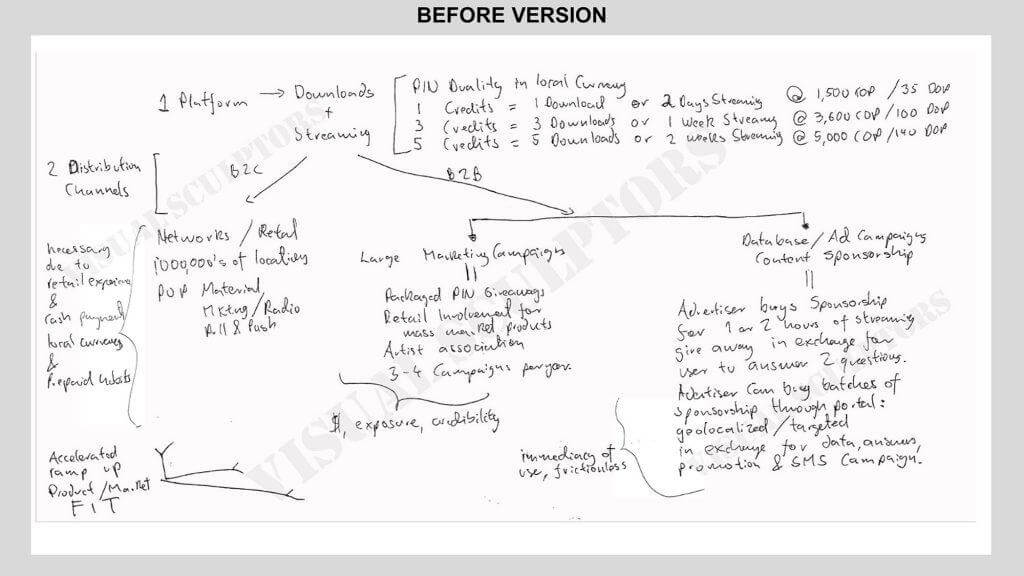 BEFORE VERSION
1 Platform → Downloads
+
Streaming
PIN Duality in local Currency
1 Credits = 1 Download or 2 Days Streaming @ 1,500 COP / 35 DOP
3 Credits = 3 Downloads or 1 week Streamg @ 3,600 COP / 100 DOP
5 Credits = 5 Downloads or 2 weeks Streming @ 5,000 COP / 140 DOP
2 Distribution
Channels
B2C
B2B
necessary
due to
retail
&
cash payment
local currency
&
Prepaid
Networks / Retal
1000,000's of location
POP Material
Mktng / Radio
Pull & Push
Large Marketing Campaigns
Packaged PIN Giveaways
Retail Involvement for
mass market products
Artist association
3-4 Campaigns per year.
$, exposure, credibility
Database / Ad Campaigns
Content Sponsorship
Advertiser buys Sponsorship
for 1 or 2 hours of streaming
give away in exchange for
user to answer 2 questions.
Advertiser Can buy batches of
sponsorship through portal:
geolocalized / targeted
in exchange for data, answers,
promotion & SMS Campaign.
immediacy of
use, frictionless
Accelerated
ramp up
Product / Market
FIT
VISUAL SCULPTORS
VISUAL SCULPTORS
VISUAL SCULPTORS